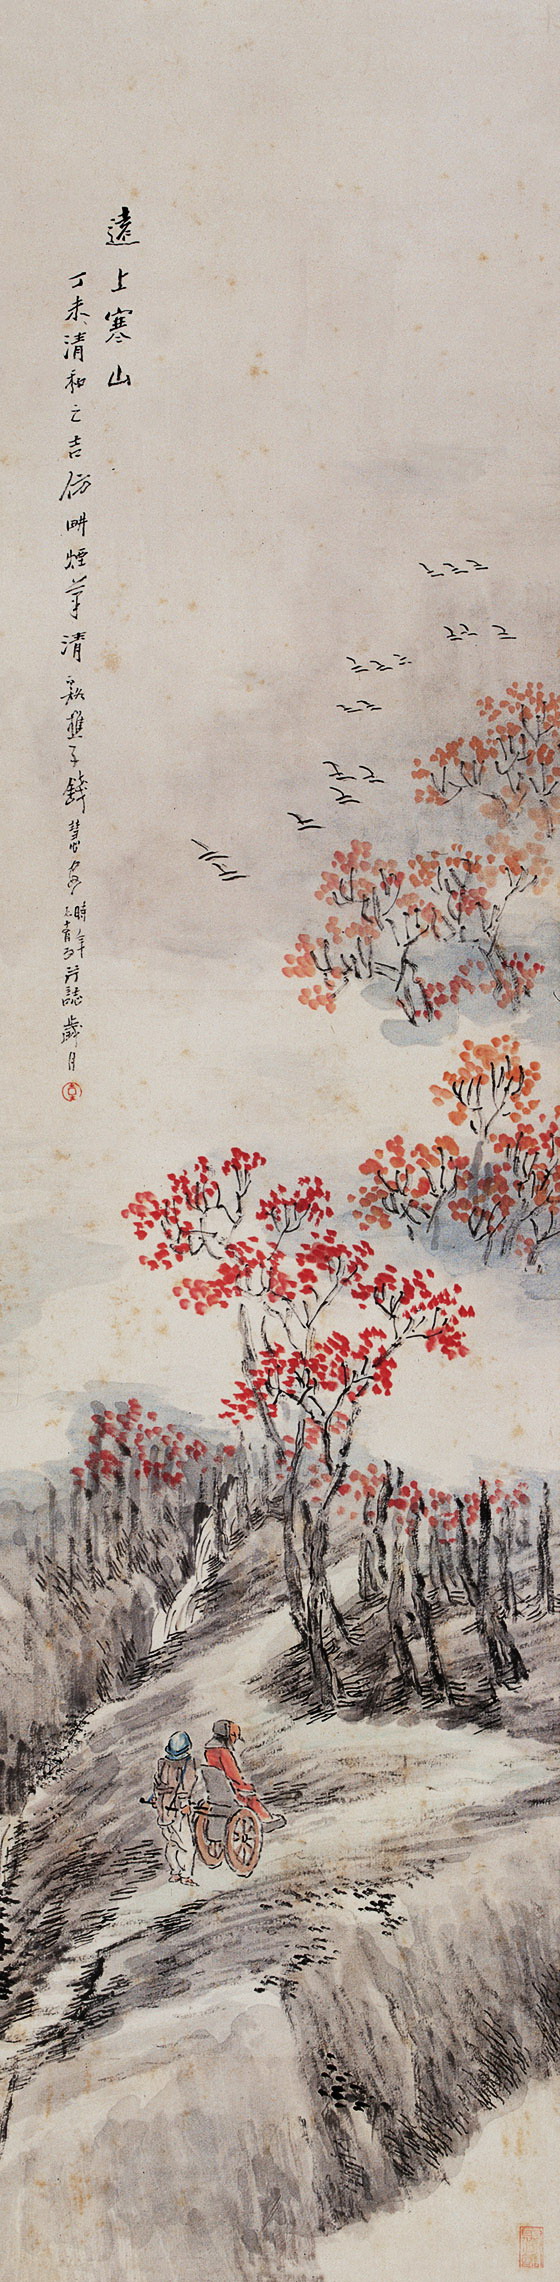 遠上寒山
丁未清和之吉仿畊煙筆清谿樵子錢慧安時年七十有五并誌歲月